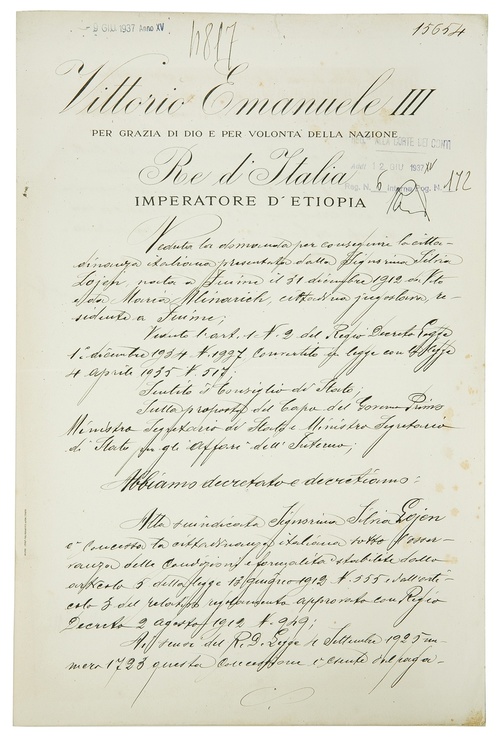 9 GIU 1937 Anno XV
4817
15654
Vittorio Emanuele III
PER GRAZIA DI DIO E PER VOLONTÀ DELLA NAZIONE
Re d'Italia
IMPERATORE D'ETIOPIA
CORTE DEI CONTI
12 GIU 1937 XV
Reg. N. 6 Interno Fog. N. 172
Veduta la domanda per conseguire la citta-
dinanza italiana presentata dalla Signorina Silvia
Lojen, nata a Fiume il 31 dicembre 1912 da Vito
e da Maria Mlinarich, cittadina jugoslava, re-
sidente a Fiume;
Veduto l'art. 1 N. 2 del Regio Decreto Legge
1° dicembre 1934 N. 1997 convertito in legge con legge
4 aprile 1935 N. 517;
Sentito il Consiglio di Stato;
Sulla proposta del Capo del Governo Primo
Ministro Segretario di Stato e Ministro Segretario
di Stato per gli Affari dell'Interno;
Abbiamo decretato e decretiamo:
Alla suindicata Signorina Silvia Lojen
è concessa la cittadinanza italiana sotto l'osser-
vanza delle condizioni e formalità stabilite dallo
articolo 5 della legge 13 giugno 1912 N. 555 e dall'arti-
colo 3 del relativo regolamento approvato con Regio
Decreto 2 agosto 1912 N. 949;
Ai sensi del R. D. Legge 4 Settembre 1925 nu-
mero 1723 questa concessione è esente dal paga-